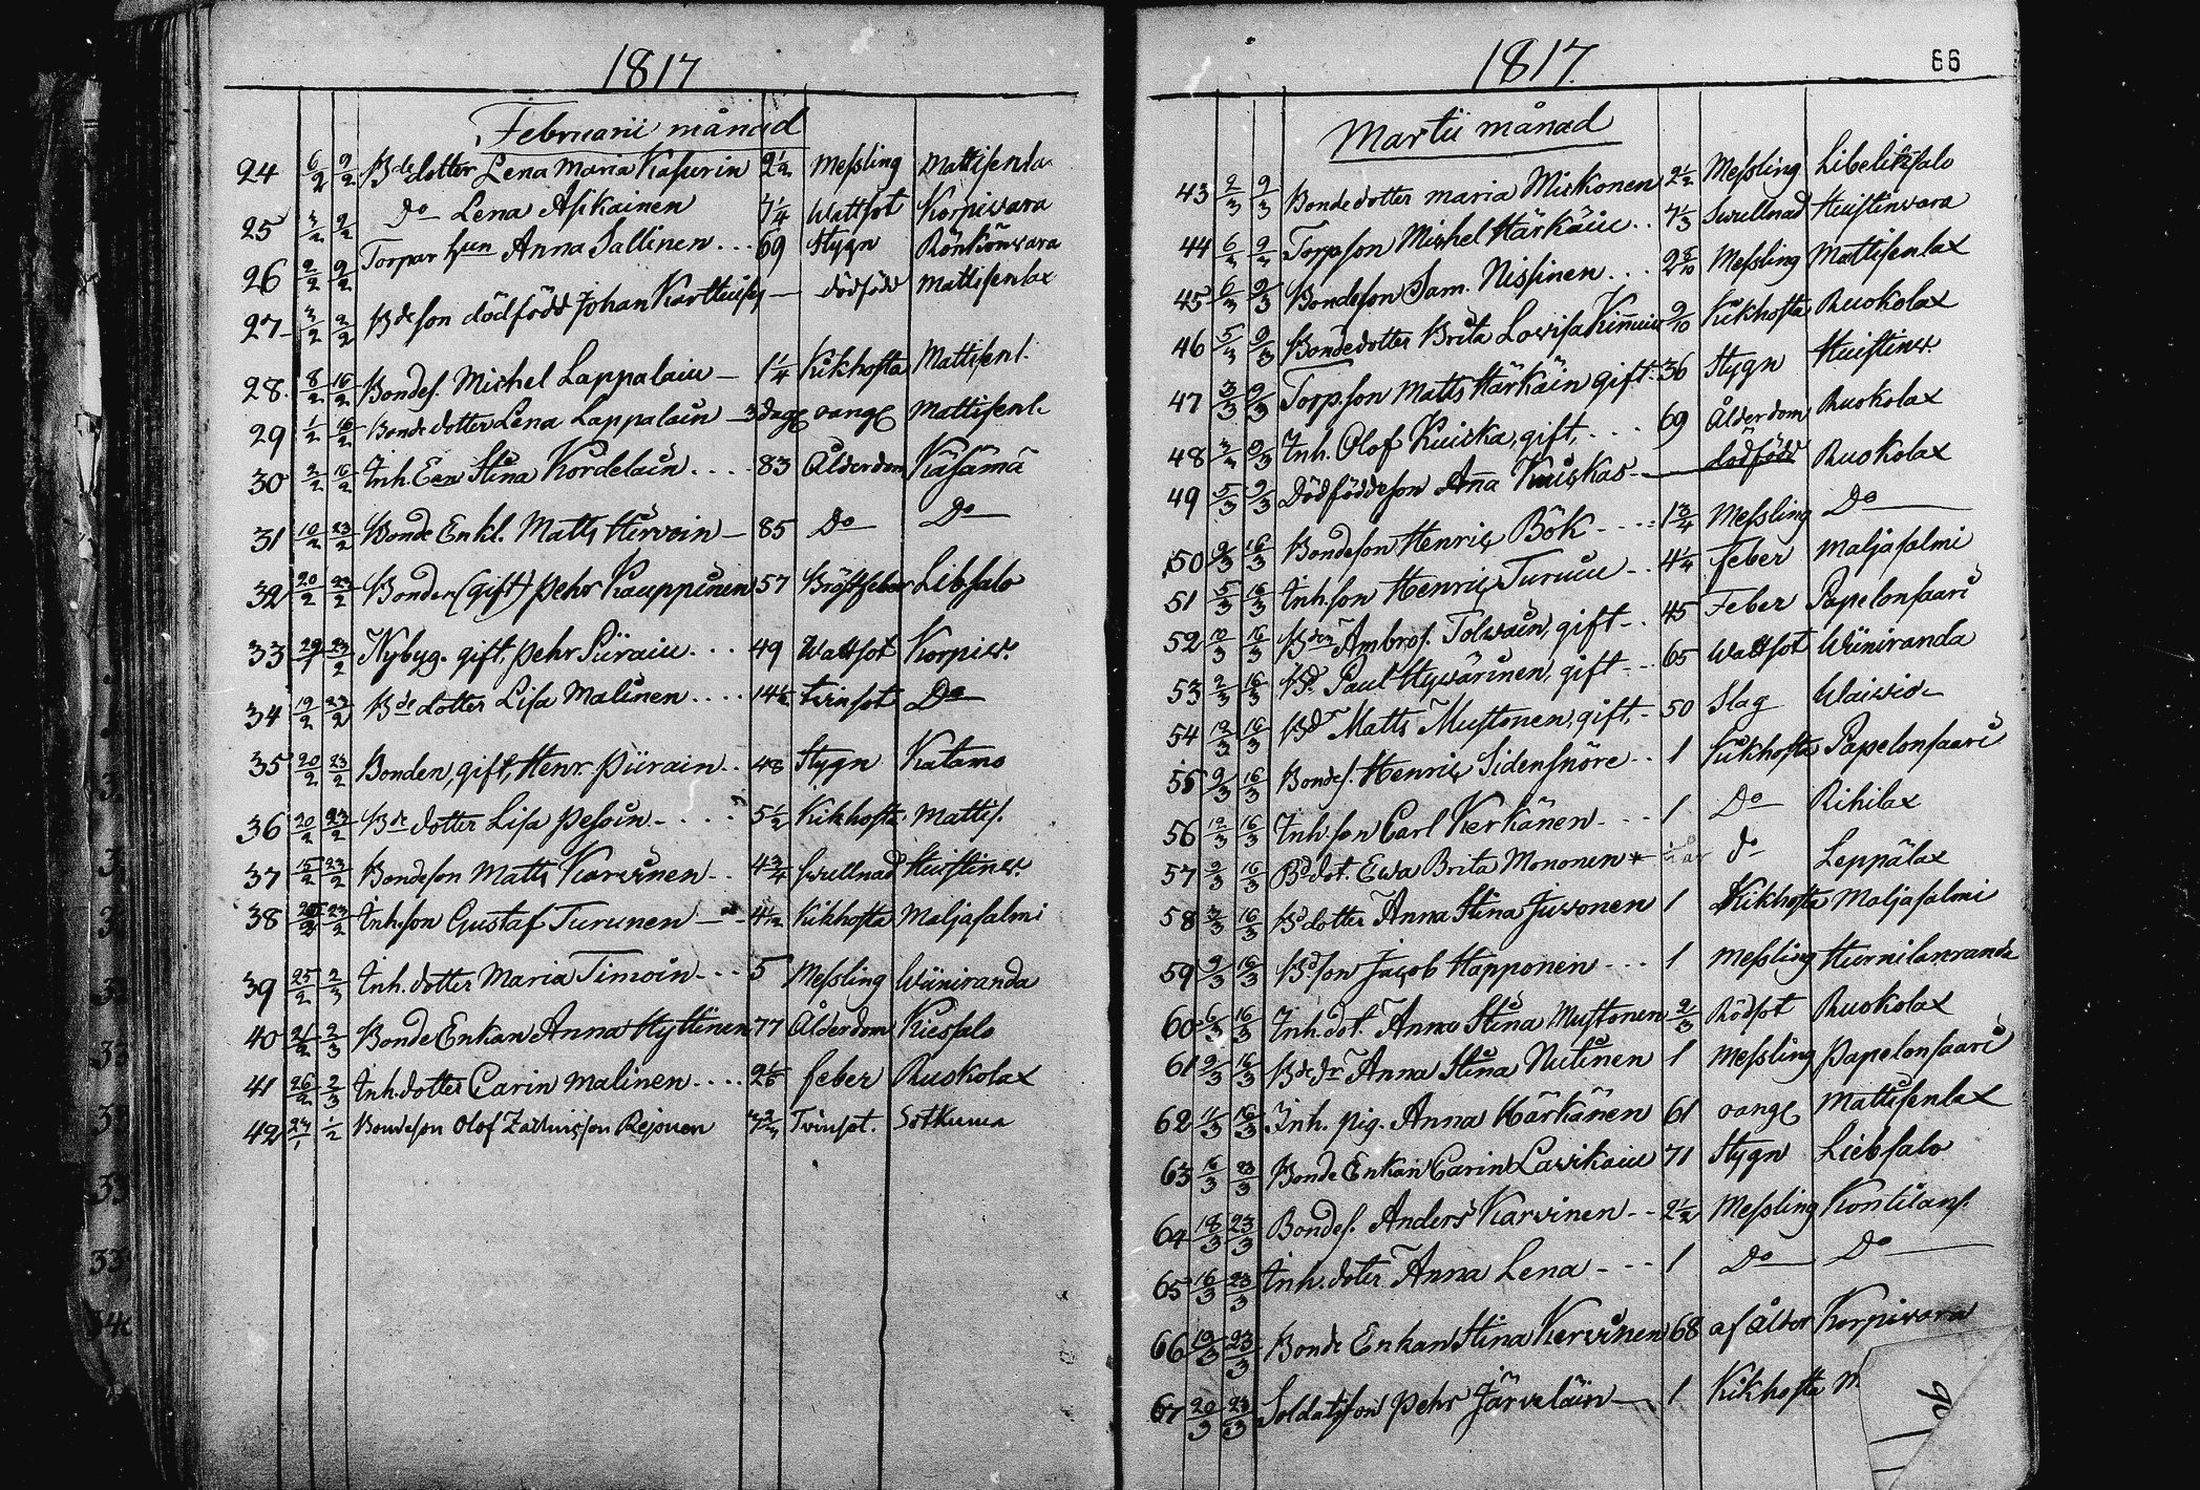 1817
Februarii månad
24 6/2 9/2 Bde dotter Lena Maria Kasurin 2 1/2 Messling Mattisenlax
25 3/2 9/2 Do Lena Asikainen 7 1/4 Wattsot Korpivara
26 2/2 9/2 Torpar hun Anna Sallinen 69 Stygn Rönkönvara
27 3/2 2/2 Bde son dödfödd Johan — dödfödd Mattisenlax
28 8/2 16/2 Bondes. Michel Lappalain 1 1/4 Kikhosta Mattisenl.
29 1/2 16/2 Bonde dotter Lena Lappalain 3 dag oang Mattisenl.
30 2/2 16/2 Inh. Een Stina Kordelain 83 Ålderdom Käsämä
31 10/2 23/2 Bonde Enkl. Matts Hirvoin 85 Do Do
32 20/2 23/2 Bonden (gift) Pehr Kauppinen 57 Bröstfeber Libsalo
33 29/1 23/2 Nybyg. gift, Pehr Piirain 49 Wattsot Korpiv.
34 19/2 23/2 Bde dotter Lisa Malinen 14 tvinsot Do
35 20/2 23/2 Bonden, gift, Henr. Piirain 48 Stygn Katamo
36 20/2 23/2 Bde dotter Lisa Pesoin 5 1/2 Kikhosta Mattis.
37 15/2 23/2 Bondeson Matts Karvinen 4 3/4 Svullnad Huistinv.
38 23/2 Inh. son Gustaf Turunen 4 1/2 Kikhosta Maljasalmi
39 25/2 2/3 Inh. dotter Maria Timoin 5 Messling Wiiniranda
40 21/2 2/3 Bonde Enkan Anna Hyttinen 77 Ålderdom Kiessalo
41 26/2 2/3 Inh. dotter Carin Malinen feber Ruokolax
42 27/1 1/2 Bondeson Olof Rejonen Tvinsot. Sotkuma
1817.
66
Martii månad
43 2/3 9/3 Bondedotter Maria Miskonen 2 1/2 Messling Libelitsalo
44 6/3 9/3 Torpson Michel Härkäin 7 1/3 Svullnad Huistinvara
45 6/3 9/3 Bondeson Sam. Nissinen Messling Mattisenlax
46 5/3 9/3 Bondedotter Brita Lovisa Kinnuin 9/10 Kikhosta Ruokolax
47 3/3 9/3 Torp.son Matts Härkäin gift 36 Stygn Huistinv.
48 3/3 9/3 Inh. Olof Kuiska, gift, 69 Ålderdom Ruokolax
49 5/3 9/3 Dödföddeson Anna Kuiskas — dödfödd Ruokolax
50 9/3 16/3 Bondeson Henric Bök 1 3/4 Messling Do
51 5/3 16/3 Inh.son Henric Turuin 4 1/4 feber Maljasalmi
52 10/3 16/3 Bden Ambros. Tolvain, gift 45 Feber Papelonsaari
53 2/3 16/3 Bd. Paul Hyvärinen, gift 65 Wattsot Wiiniranda
54 12/3 16/3 Bdr Matts Mustonen, gift, 50 Slag Waivio
55 9/3 16/3 Bondes. Henric Sidensnöre 1 Kikhosta Papelonsaari
56 12/3 16/3 Inh.son Carl Kerkänen 1 Do Rihilax
57 9/3 16/3 Bd dot. Ewa Brita Mononen do Leppälax
58 3/3 16/3 Bd dotter Anna Stina Juvonen 1 Kikhosta Maljasalmi
59 9/3 16/3 Bd son Jacob Happonen 1 Messling
60 6/3 16/3 Inh. dot. Anna Stina Mustonen 2/3 Rödsot Ruokolax
61 9/3 16/3 Bde dr Anna Stina Nutinen 1 Messling Papelonsaari
62 11/3 16/3 Inh. pig. Anna Kärkänen 61 oang Mattisenlax
63 16/3 23/3 Bonde Enkan Carin Lavikain 71 Stygn Liebsalo
64 18/3 23/3 Bondes. Anders Karvinen 2 1/2 Messling Kontilans.
65 16/3 23/3 Inh. doter Anna Lena 1 Do Do
66 19/3 23/3 Bonde Enkan Stina Kervinen 68 af ålder Korpivara
67 20/3 23/3 Soldatsson Pehr Järveläin 1 Kikhosta M.